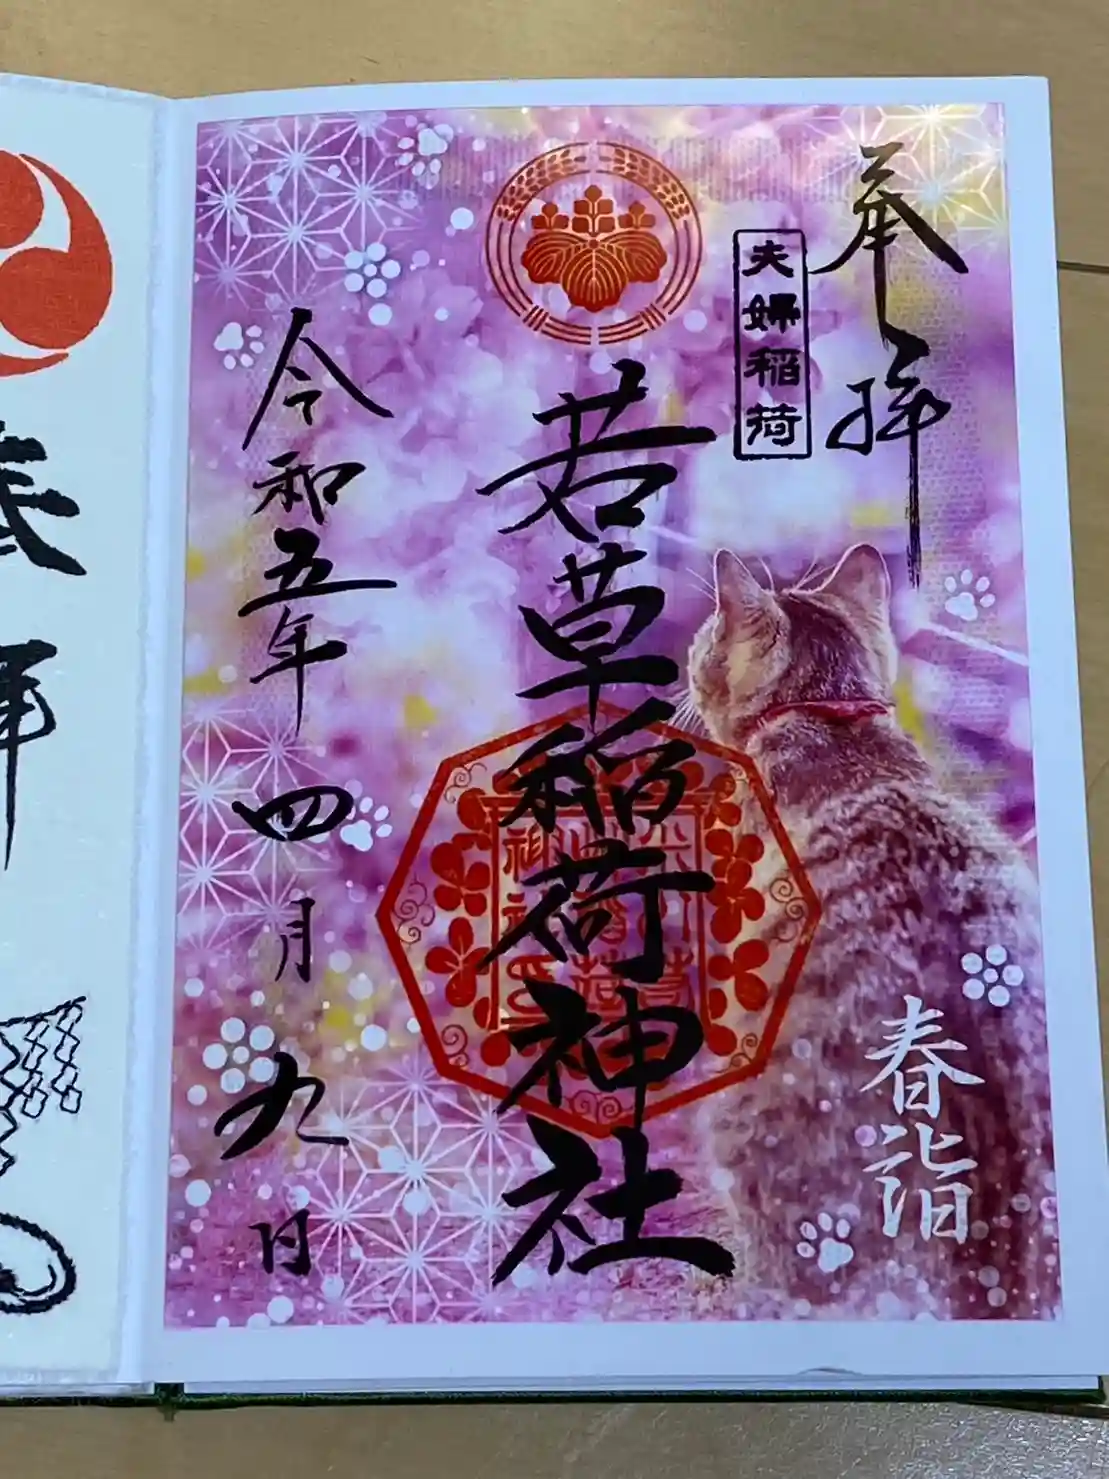 奉拝
夫婦稲荷
若草稲荷神社
春詣
令和五年四月九日
拝